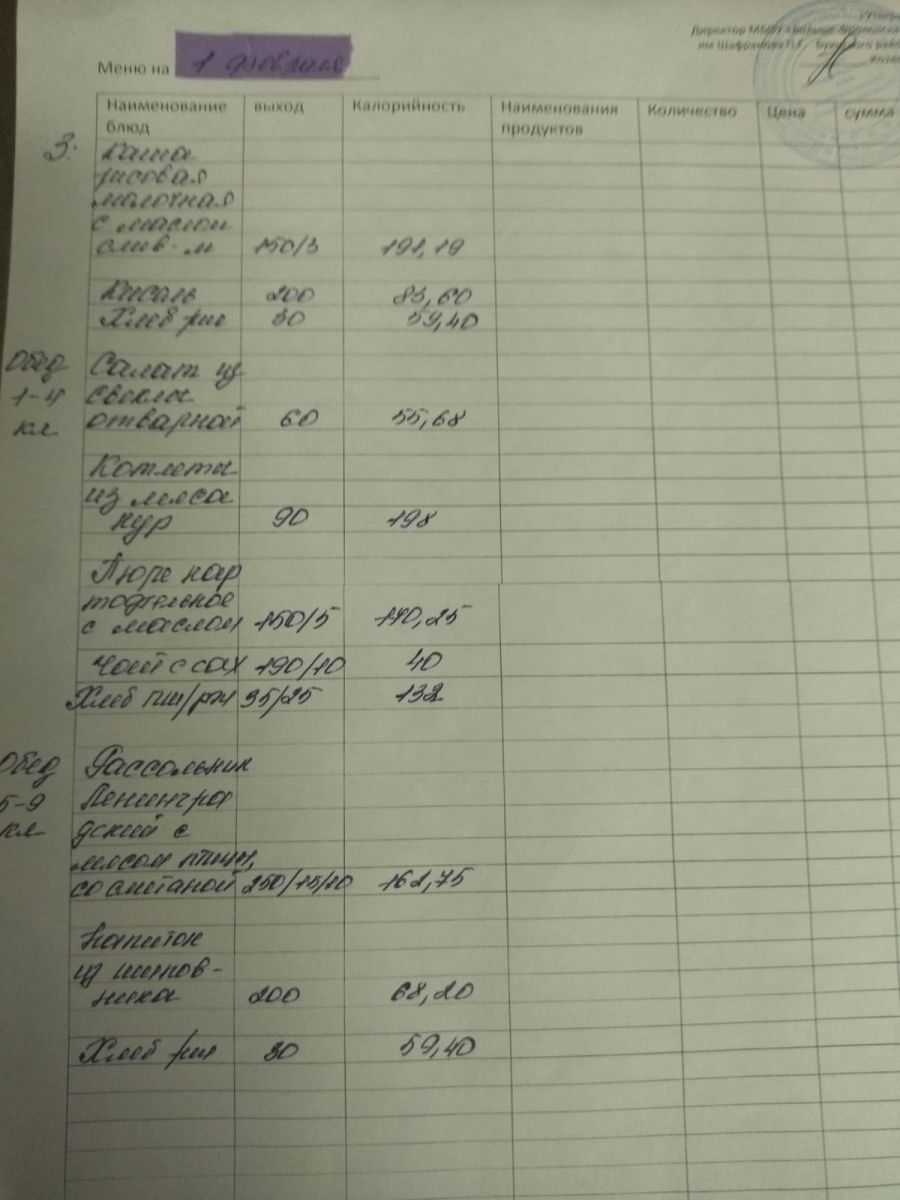 Директор МБОУ
им Шафранова П.Г.
Меню на 1 февраля
Наименование блюд выход Калорийность Наименования продуктов Количество Цена сумма
З. Каша
рисовая
молочная
с маслом
слив-м 150/5 191,19
Кисель 200 83,60
Хлеб рж 30 59,40
Обед Салат из
1-4 свеклы
кл отварной 60 55,68
Котлеты
из мяса
кур 90 198
Пюре кар
тофельное
с маслом 150/5 140,25
Чай с сах 190/10 40
Хлеб пш/рж 35/25 132
Обед Рассольник
5-9 Ленингра
кл дский с
мясом птиц,
со сметаной 250/15/10 162,75
Напиток
из шипов-
ника 200 68,20
Хлеб рж 30 59,40